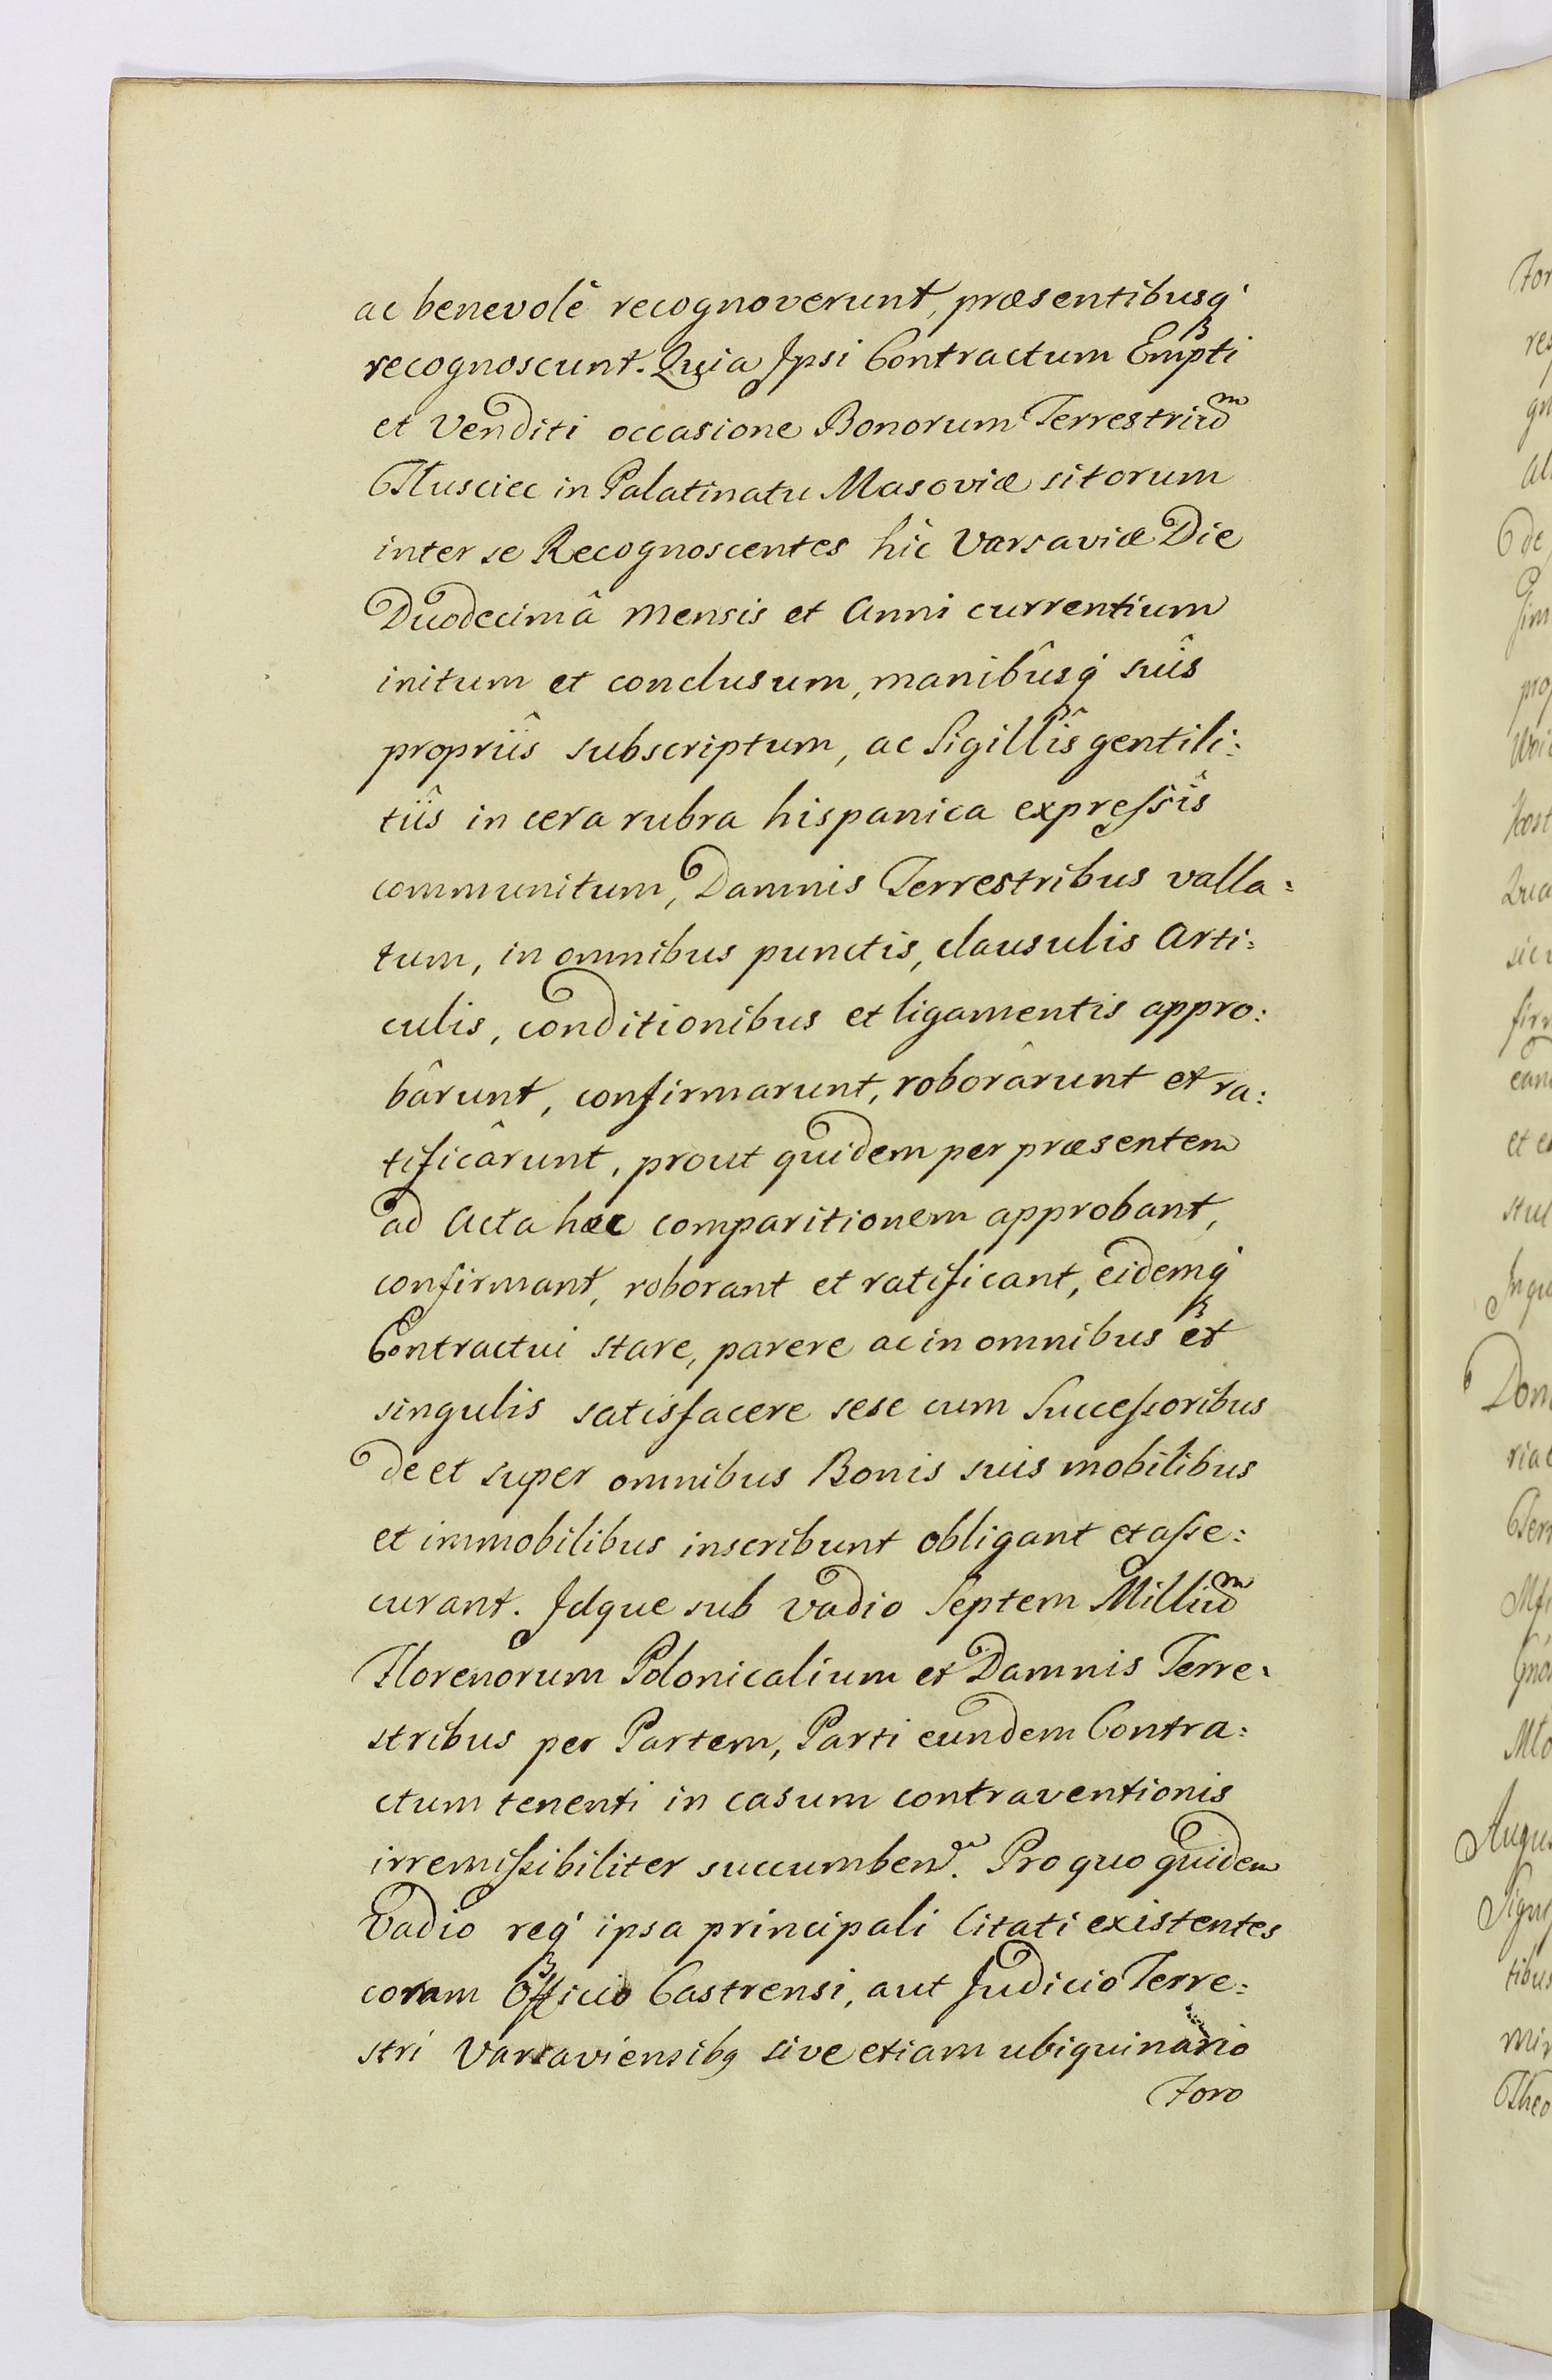 ac benevolè recognoverunt, præsentibusq́
recognoscunt. Quia Ipsi Contractum Empti
et Venditi occasione Bonorum Terrestriũm
Tłusciec in Palatinatu Masoviæ sitorum
inter se Recognoscentes hic Varsaviæ Die
Duodecimâ Mensis et Anni currentium
initum et conclusum, manibûsq́ suîs
propriîs subscriptum, ac Sigillîs gentili:
tiîs in cera rubra hispanica expreſsîs
communitum, Damnis Terrestribus valla:
tum, in omnibus punctis, clausulis Arti:
culis, conditionibus et ligamentis appro:
bârunt, confirmarunt, roborârunt et ra:
tificârunt, prout quidem per præsentem
ad Acta hæc comparitionem approbant,
confirmant, roborant et ratificant, eidemq́
Contractui stare, parere ac in omnibus et
singulis satisfacere sese cum Succeſsoribus
de et super omnibus Bonis suis mobilibus
et immobilibus inscribunt obligant et aſse:
curant. Idque sub vadio Septem Milliũm
Florenorum Polonicalium et Damnis Terre:
stribus per Partem, Parti eundem Contra:
ctum tenenti in casum contraventionis
irremiſsibiliter succumben͠d. Pro quo quidem
Vadio req́ ipsa principali Citati existentes
coram Officio Castrensi, aut Judicio Terre:
stri Varsaviensibq sive etiam ubiquinario
Foro